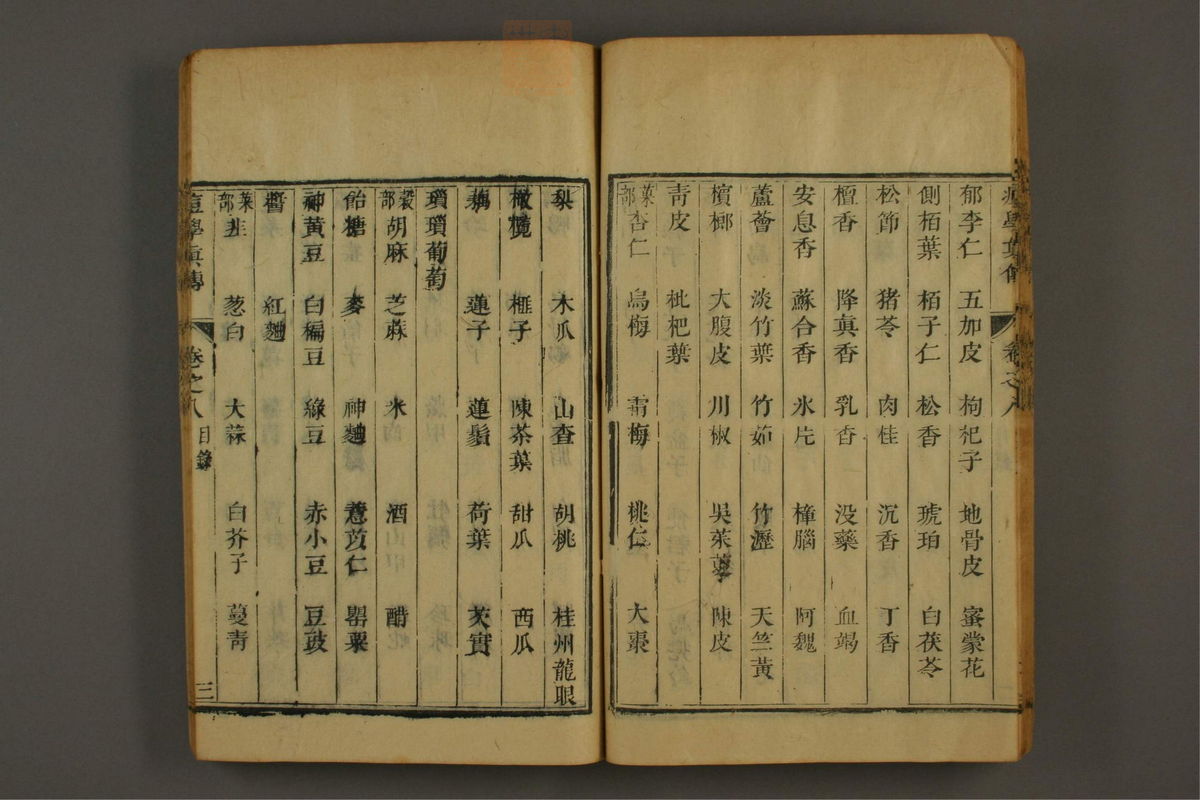 痘學眞傳 卷之八
郁李仁 五加皮 枸杞子 地骨皮 蜜蒙花
側栢葉 栢子仁 松香 琥珀 白茯苓
松節 猪苓 肉桂 沉香 丁香
檀香 降眞香 乳香 没藥 血竭
安息香 蘇合香 氷片 樟腦 阿魏
蘆薈 淡竹葉 竹茹 竹瀝 天竺黃
檳榔 大腹皮 川椒 吳茱萸 陳皮
靑皮 枇杷葉
菓部 杏仁 烏梅 靑梅 桃仁 大棗
梨 木瓜 山查 胡桃 桂州龍眼
橄欖 榧子 陳茶葉 甜瓜 西瓜
藕 蓮子 蓮鬚 荷葉 芡實
瑣瑣葡萄
穀部 胡麻 芝蔴 米 酒 醋
飴糖 麥 神麯 薏苡仁 罌粟
神黃豆 白䅩豆 綠豆 赤小豆 豆豉
醬 紅麯
菜部 韭 葱白 大蒜 白芥子 蔓靑
痘學眞傳 卷之八 目錄 三